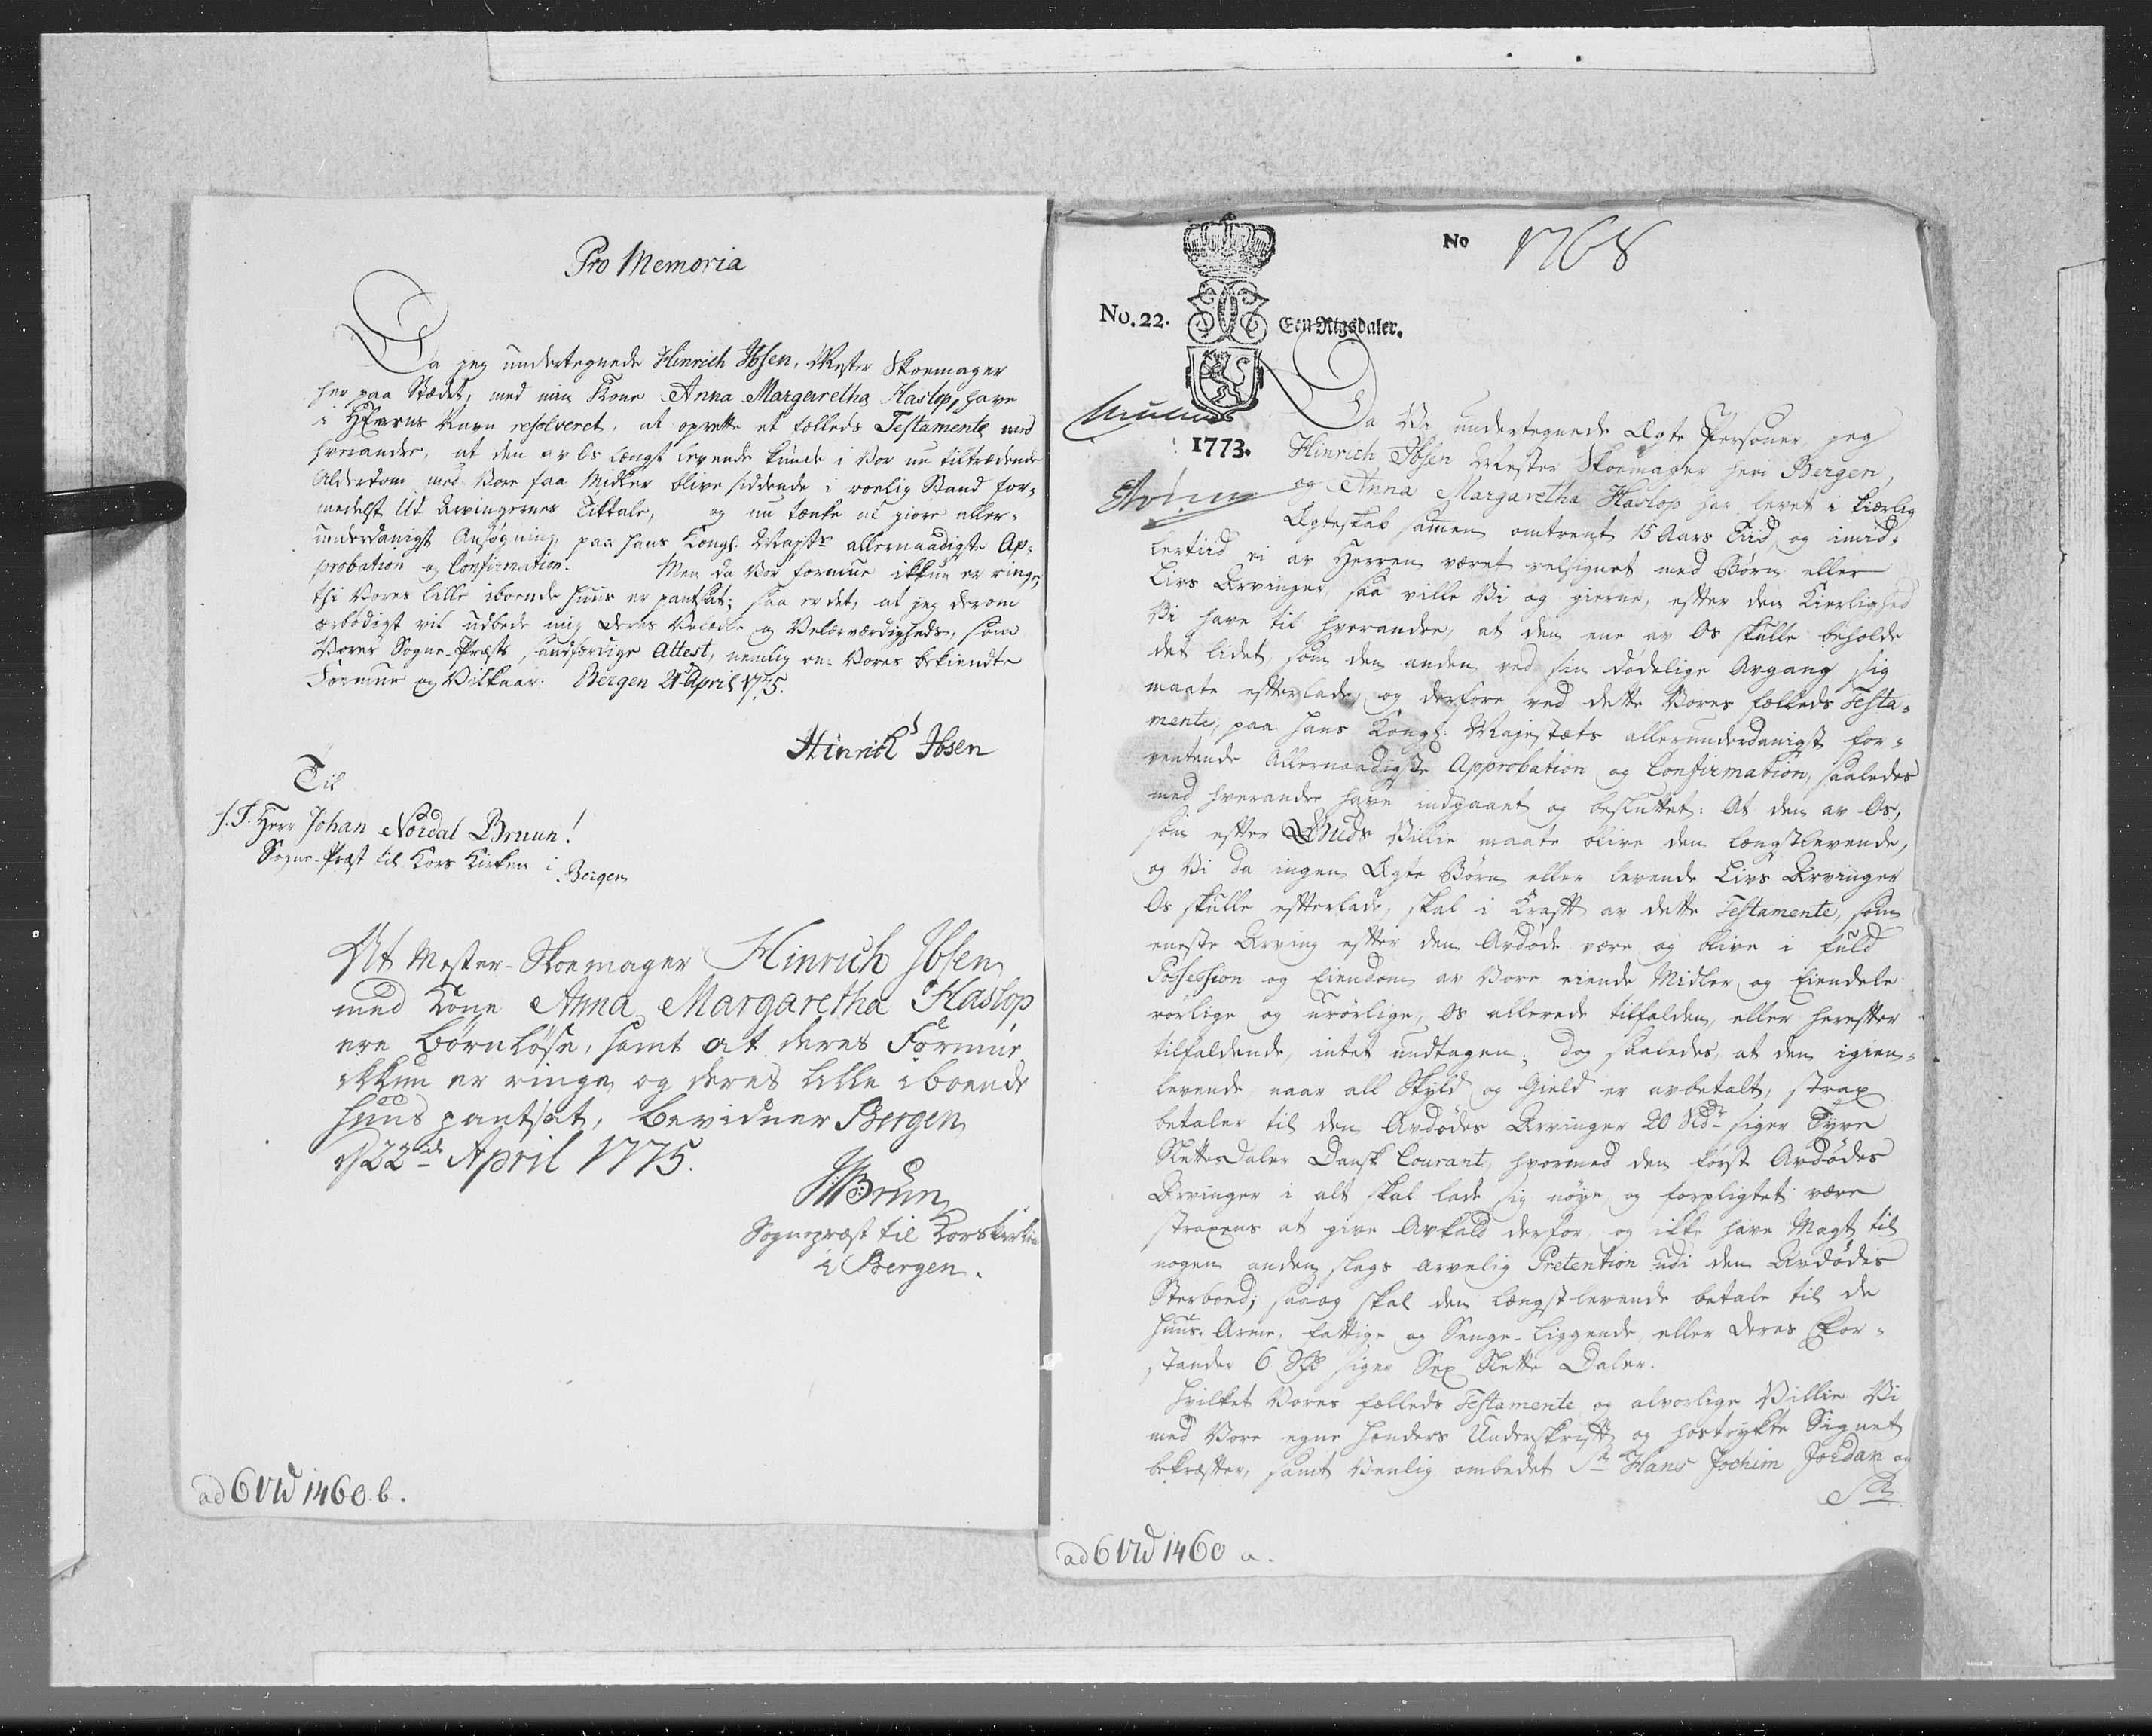 Pro Memoria
Da jeg undertegnede Hinrich Ibsen, Mester Skoemager
her paa Stædet, med min Kone Anna Margaretha Haslop, have
i HErrens Navn resolveret, at oprette et fælleds Testamente med
hverandre, at den av Os længst levende kunde i Vor nu tiltrædende
Alderdom med Vore faa Midler blive siddende i roelig Stand for-
medelst Ud Arvingernes Tiltale, og nu tænke at giøre aller-
underdanigst Ansøgning paa Hans Kongl. Mayts allernaadigste Ap-
probation og Confirmation. Men da Vor formue ikkun er ringe,
thi Vores lille iboende Huus er pantsat; saa er det, at jeg derom
ærbødigst vil udbede mig Deres Velædle og Velærværdigheds, som
Vores Sogne-Præsts, sandfærdige Attest, nemlig om Vores bekiendte
Formue og Vilkaar. Bergen 21 April 1775.
Hinrich Ibsen
Til
S. T. Herr Johan Nordal Bruun!
Sogne-Præst til Kors Kirken i
Bergen
At Mester-Skoemager Hinrich Ibsen
med Kone Anna Margaretha Haslop
ere Børnløse, samt at deres Formue
ikkun er ringe og deres lille iboende
Huus pantsat, bevidner Bergen
d 22de April 1775.
JNBrun
Sognepræst til Korskirken
i Bergen.
ad 6 Vid 1460. b.
No 1768
No. 22. Een Rigsdaler.
1773.
Da Vi undertegnede Ægte Personer, jeg
Hinrich Ibsen Mester Skoemager heri Bergen,
og Anna Margaretha Haslop har levet i kiærlig
Ægteskab sammen omtrent 15 Aars Tiid, og imid-
lertiid ei av Herren været velsignet med Børn eller
Livs Arvinger, saa ville Vi og gierne, efter den Kierlighed
Vi have til hverandre, at den ene av Os skulle beholde
det lidet, som den anden ved sin dødelige Avgang sig
maate efterlade, og derfore ved dette Vores fælleds Testa-
mente, paa Hans Kongl. Majestæts allerunderdanigst for-
ventende Allernaadigste Approbation og Confirmation, saaledes
med hverandre have indgaaet og besluttet: At den av Os,
som efter Guds Villie maate blive den længstlevende,
og Vi da ingen Ægte Børn eller levende Livs Arvinger
Os skulle efterlade, skal i Kraft av dette Testamente, som
eneste Arving efter den Avdøde være og blive i fuld
Possession og Eiendom av Vore eiende Midler og Eiendele
rørlige og urørlige, Os allerede tilfalden, eller herefter
tilfaldende, intet undtagen; dog saaledes, at den igien-
levende, naar all Skyld og Gield er avbetalt, strax
betaler til den Avdødes Arvinger 20 Sldr siger Tyve
Slette Daler Dansk Courant, hvormed den først Avdødes
Arvinger i alt skal lade sig nøye, og forpligtet være
straxens at give Avkald derfor, og ikke have Magt til
nogen anden slags arvelig Pretention udi den Avdødes
Sterboed; saaog skal den længst levende betale til de
Huus-Arme, fattige og Senge-liggende, eller deres For-
stander 6 Sld siger Sex Slette Daler.
Hvilket Vores fælleds Testamente og alvorlige Villie Vi
med Vore egne Hænders Underskrift og hostrykte Signet
bekræfter, samt Venlig ombedet Sr Hans Jochim Jordan og
Sr
ad 6 Vid 1460 a.